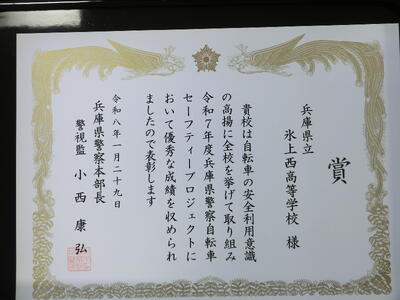 賞
兵庫県立
氷上西高等学校 様
貴校は自転車の安全利用意識
の高揚に全校を挙げて取り組み
令和7年度兵庫県警察自転車
セーフティープロジェクトに
おいて優秀な成績を収められ
ましたので表彰します
令和八年一月二十九日
兵庫県警察本部長
警視監 小西康弘